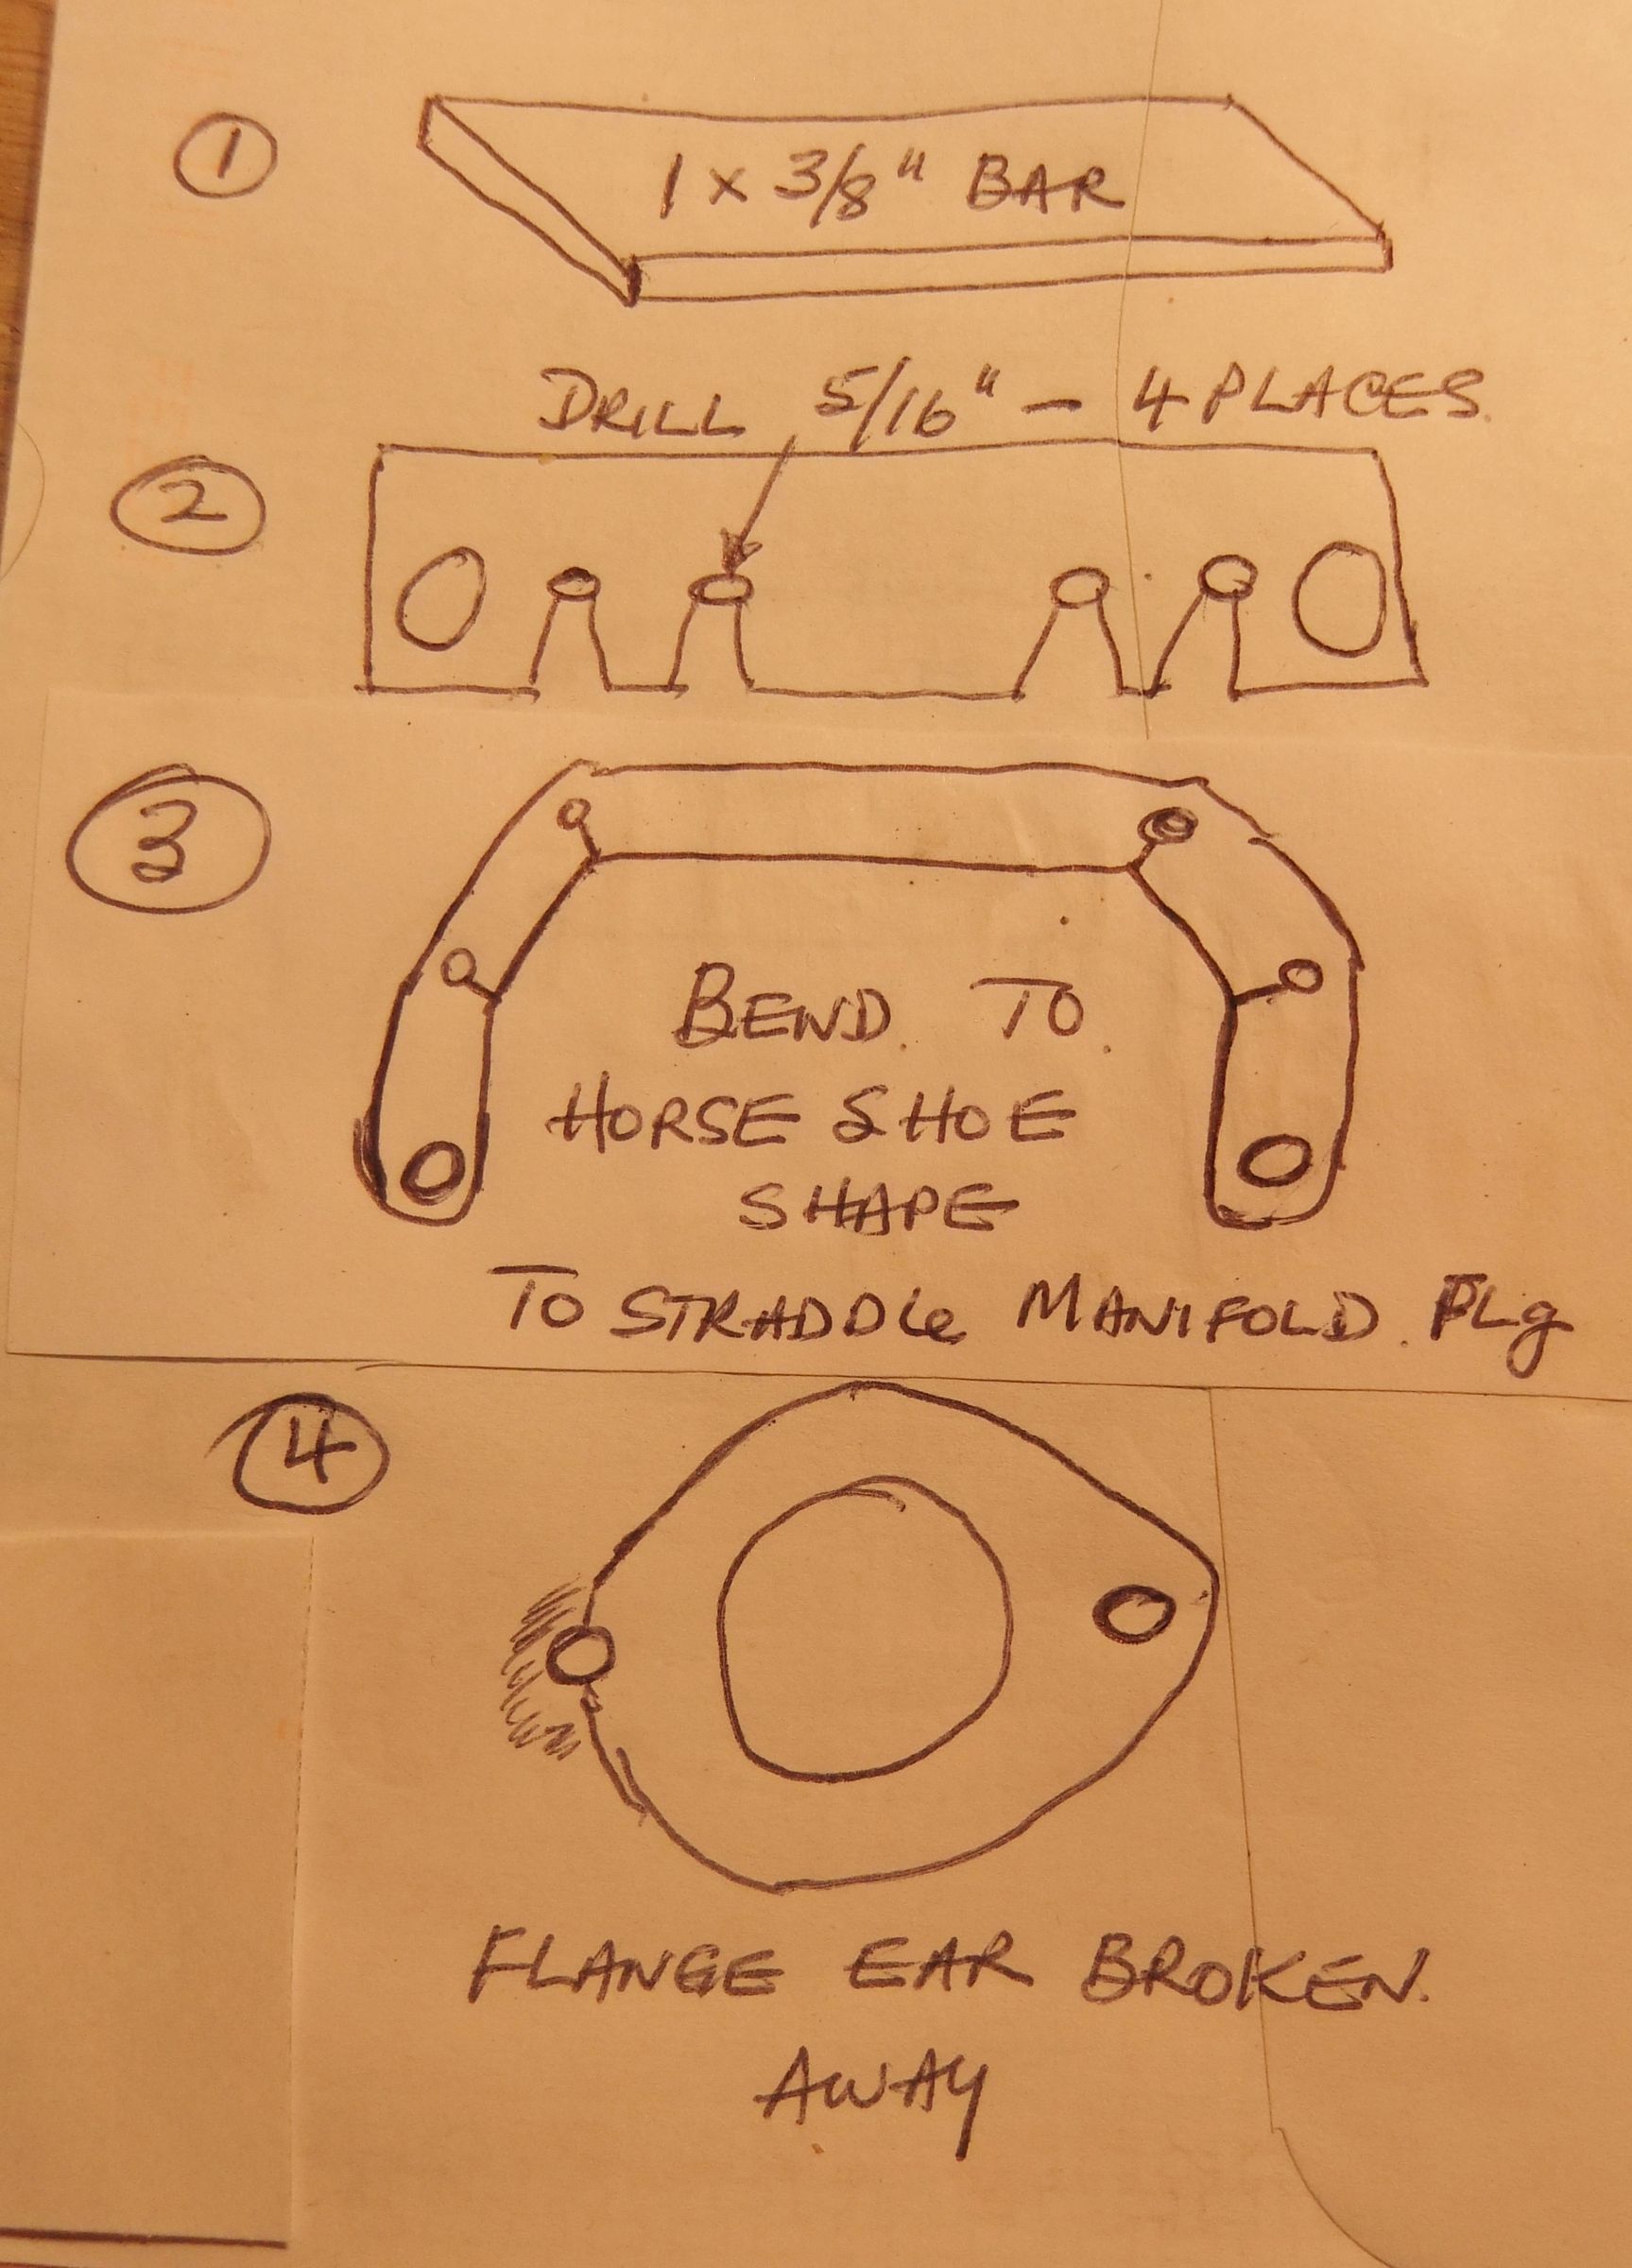 1
1 x 3/8" BAR
DRILL 5/16" - 4 PLACES.
2
3
BEND. TO.
HORSE SHOE
SHAPE
TO STRADDLe MANIFOLD. FLg
4
FLANGE EAR BROKEN.
AWAY